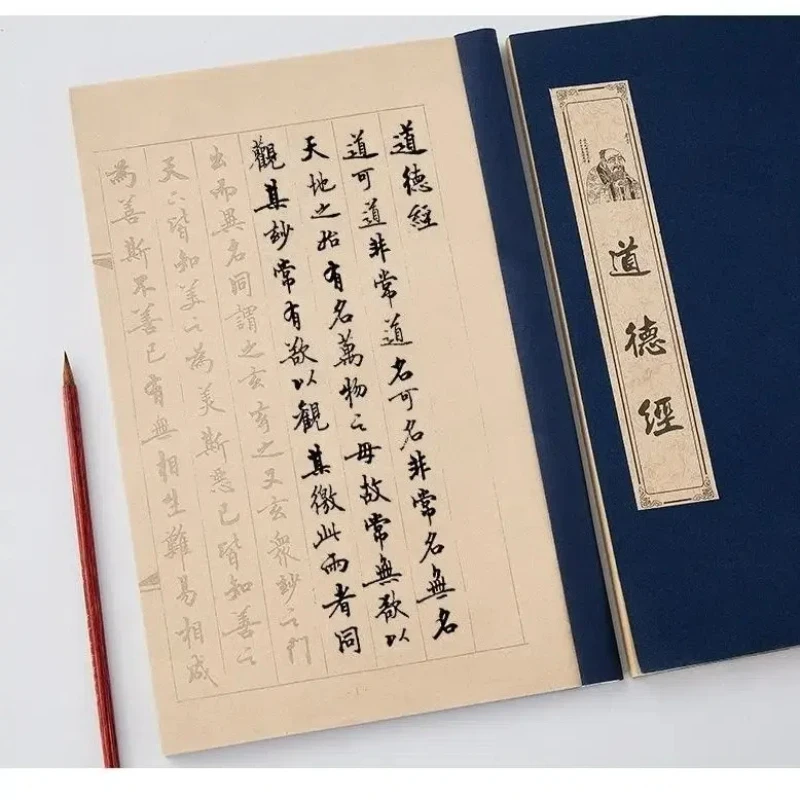 道德經
道可道非常道名可名非常名無名
天地之始有名萬物之母故常無欲以
觀其妙常有欲以觀其徼此兩者同
出而異名同謂之玄玄之又玄衆妙之門
天下皆知美之為美斯惡已皆知善之
為善斯不善已有無相生難易相成
道德經